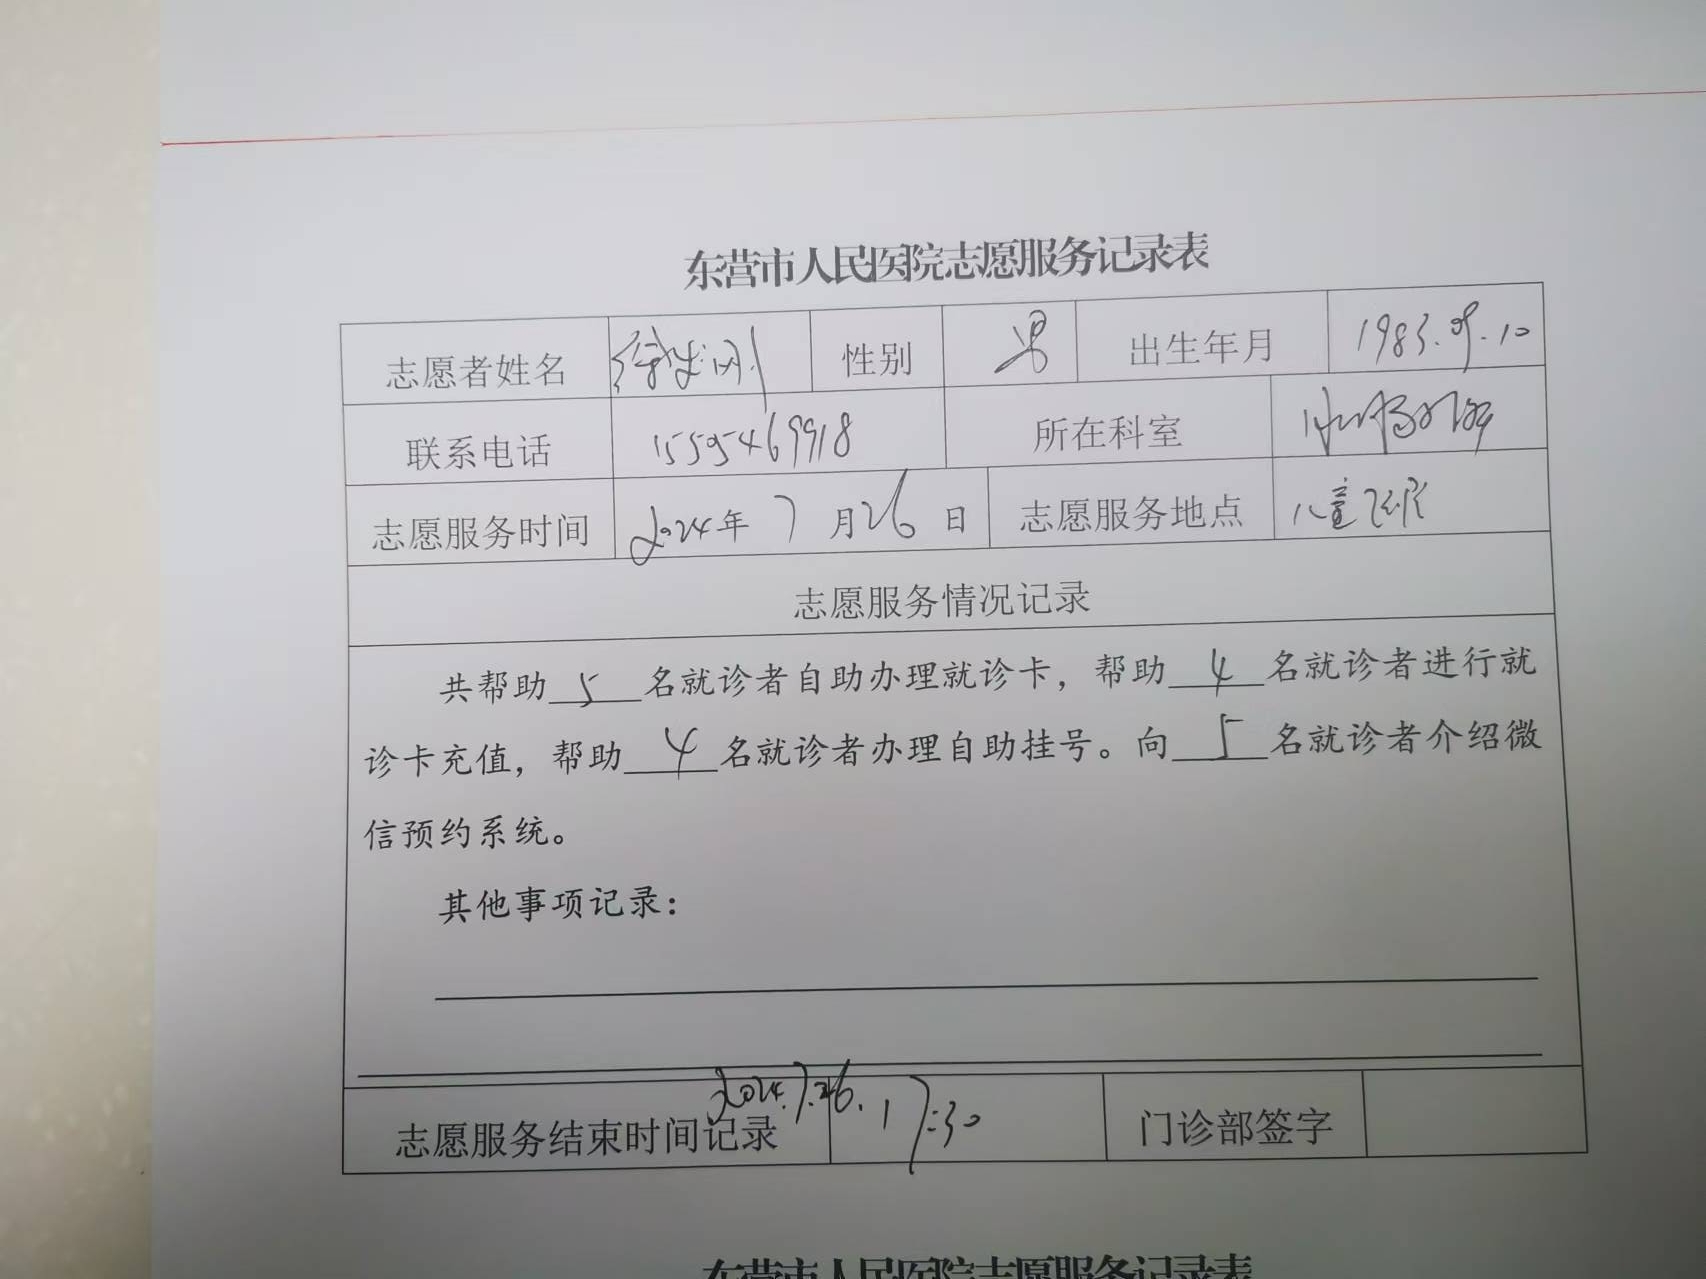 东营市人民医院志愿服务记录表
志愿者姓名 性别 男 出生年月 1983.09.10
联系电话 15595469918 所在科室
志愿服务时间 2024年 7 月26 日 志愿服务地点 儿童医院
志愿服务情况记录
共帮助 5 名就诊者自助办理就诊卡，帮助 4 名就诊者进行就
诊卡充值，帮助 4 名就诊者办理自助挂号。向 5 名就诊者介绍微
信预约系统。
其他事项记录：
志愿服务结束时间记录 2024.7.26.17:30 门诊部签字
东营市人民医院志愿服务记录表